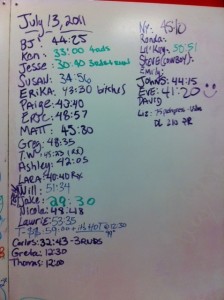 July 13, 2011
BJ: 44:25
Ken: 33:00
Jesse: 30:40
SUSAN: 34:56
ERIKA: 43:30 bitches
Paige: 43:40
Eric: 48:57
MATT: 43:30
Greg: 48:35
T.W.: 45:23 (RX)
Ashley: 42:05
LARA: 40:40 RX
Will: 51:34
Jake: 29:30
Nicole: 49:48
Laurie: 53:35
Carlos: 32:43
Greta: 12:30
Thomas: 12:00
45:10
Ronda:
Lil' Key: 50:51
STEVE (COWBOY):
Emily:
JOHN S: 44:15
EVE: 41:20
DAVID